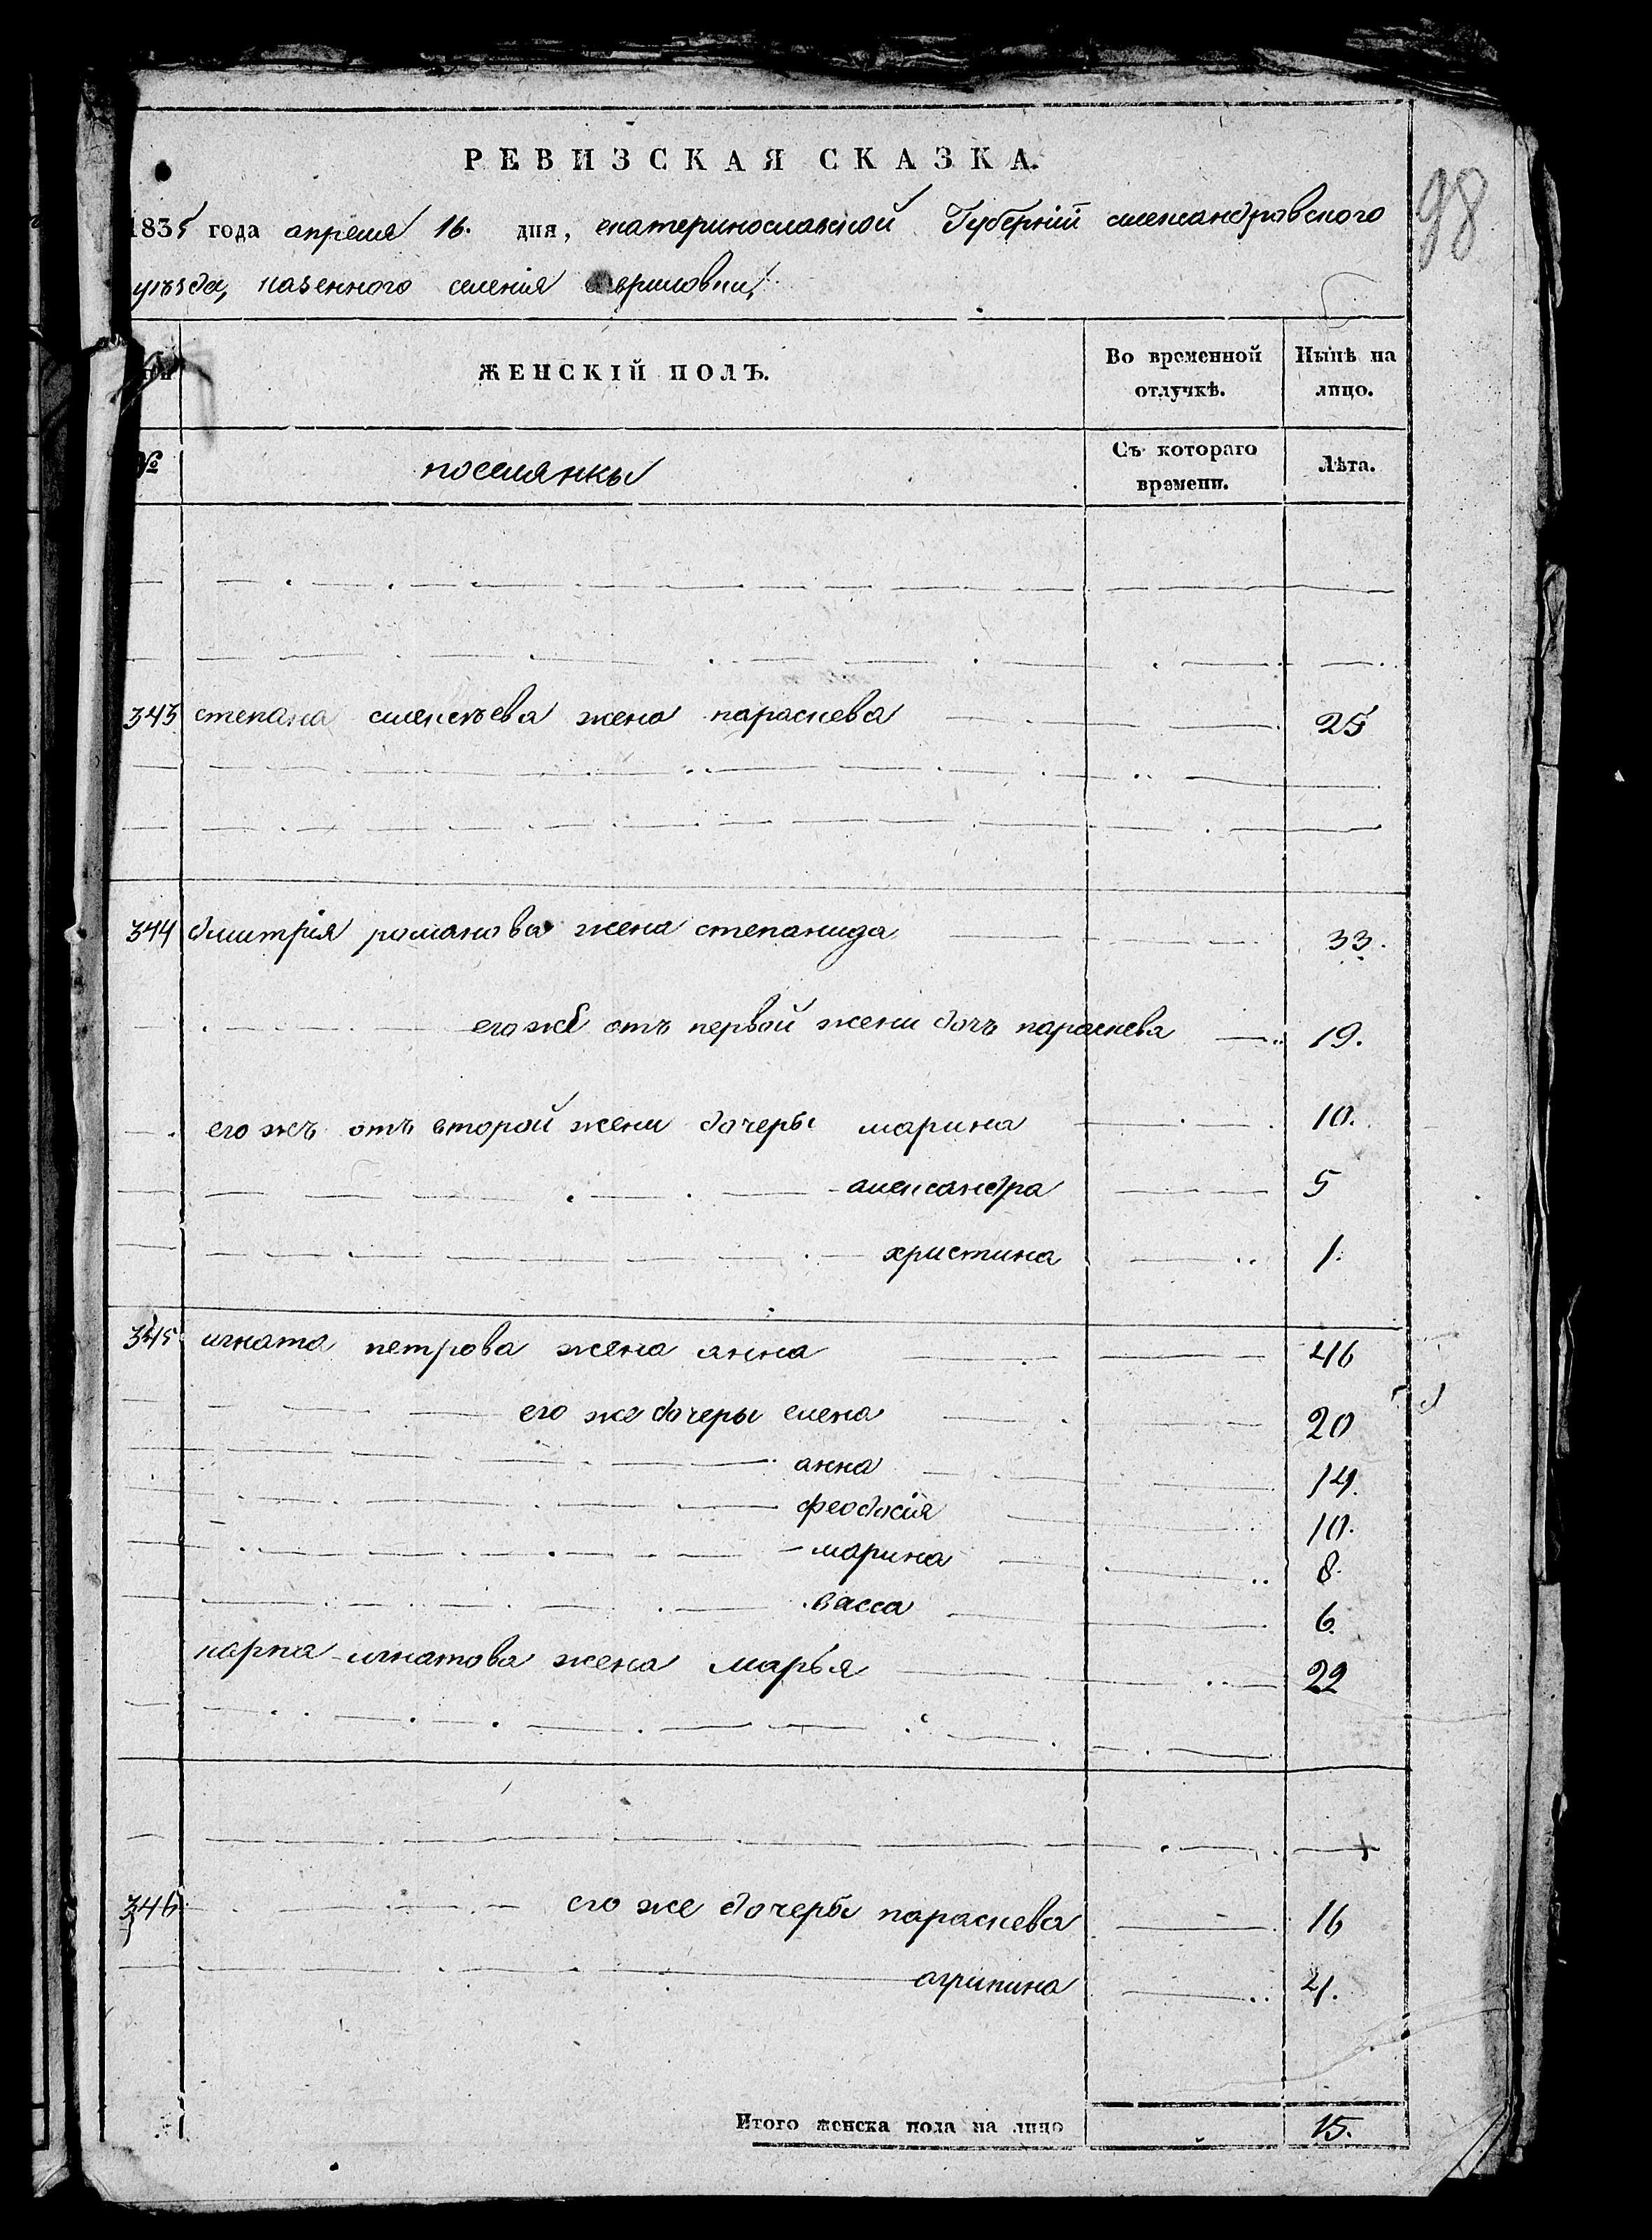 98
РЕВИЗСКАЯ СКАЗКА.
1835 года апреля 16. дня, екатеринославской Губернiи александровского
уѣзда, казенного селенія авриловки,
ЖЕНСКІЙ ПОЛЪ. Во временной отлучкѣ. Нынѣ на лицо.
№ поселянкы Съ котораго времени. Лѣта.
343 степана алексѣева жена параскева 25
344 дмитрія романова жена степанида 33.
его же отъ первой жени дочъ параскева 19.
его жъ отъ второй жени дочеры марина 10.
александра 5
христина 1.
345 игната петрова жена анна 46
его же дочеры елена 20
анна 14.
феодосія 10.
марина 8.
васса 6.
карпа игнатова жена марья 22
346 его же дочеры параскева 16
агрипина 4.
Итого женска пола на лицо 15.